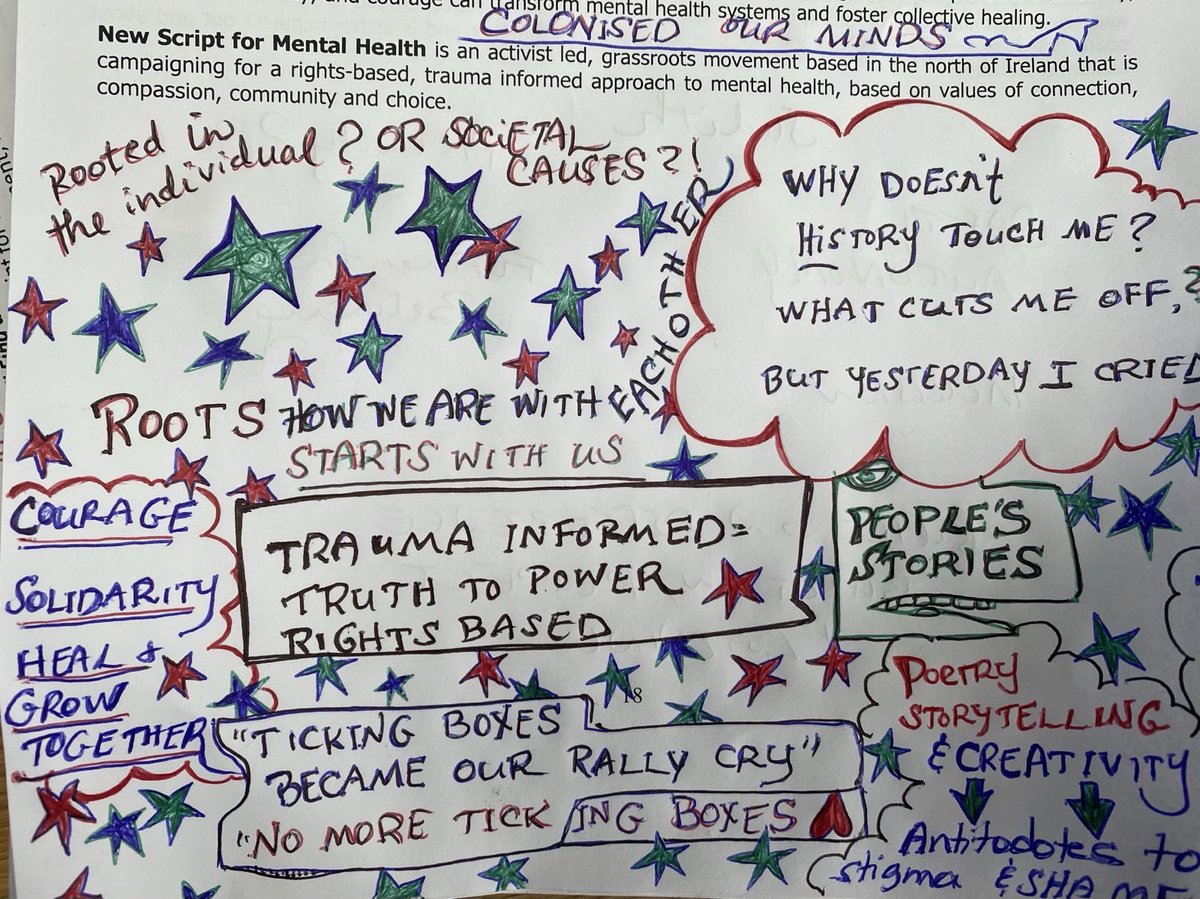 and courage can transform mental health systems and foster collective healing.
COLONISED OUR MINDS
New Script for Mental Health is an activist led, grassroots movement based in the north of Ireland that is
campaigning for a rights-based, trauma informed approach to mental health, based on values of connection,
compassion, community and choice.
Rooted in
the individual? OR SOCIETAL
CAUSES?!
WHY DOESn't
HISTORY TOUCH ME?
WHAT CUTS ME OFF,?
BUT YESTERDAY I CRIED
ROOTS HOW WE ARE WITH EACHOTHER
STARTS WITH US
COURAGE
SOLIDARITY
HEAL &
GROW
TOGETHER
TRAUMA INFORMED=
TRUTH TO POWER
RIGHTS BASED
PEOPLE'S
STORIES
POETRY
STORYTELLING
& CREATIVITY
Antitodotes to
stigma & SHAME
18
"TICKING BOXES
BECAME OUR RALLY CRY"
"NO MORE TICKING BOXES